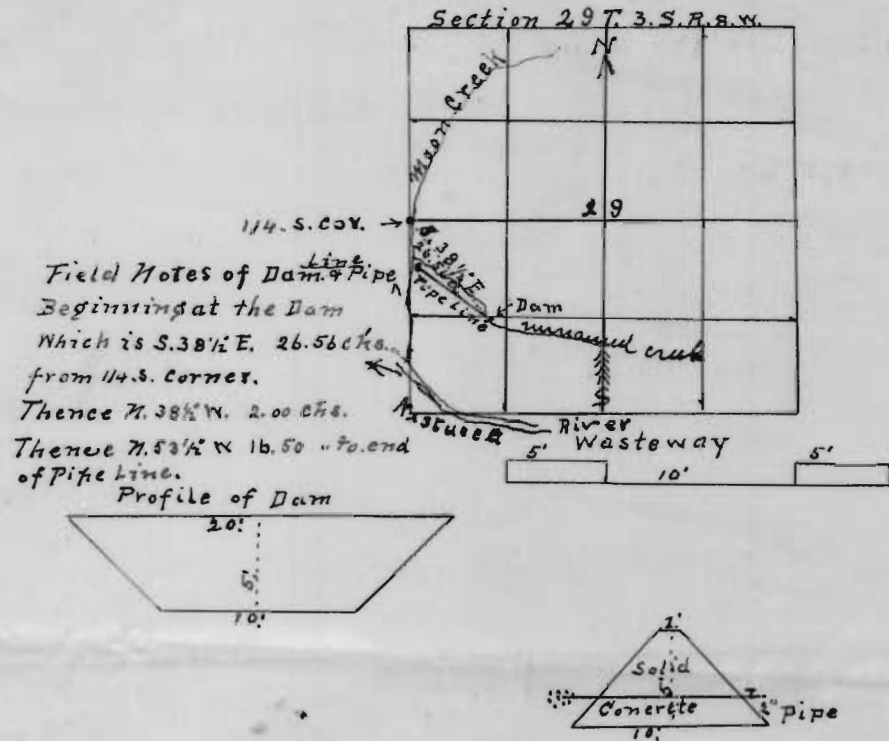 Section 29 T. 3. S. R. 8. W.
N
Moon Creek
29
1/4. S. Cor. →
S. 38½ E
26.56
Pipe Line
Dam
unnamed creek
Field Notes of Dam & Pipe Line
Beginning at the Dam
Which is S. 38½ E. 26.56 chs.
from 1/4. S. Corner.
Thence N. 38½ W. 2.00 chs.
Thence N. 53½ W 16.50 " to end
of Pipe Line.
Nestucca River
Wasteway
5'
10'
5'
Profile of Dam
20'
6'
10'
2'
Solid
6'
Concrete
2" Pipe
10'